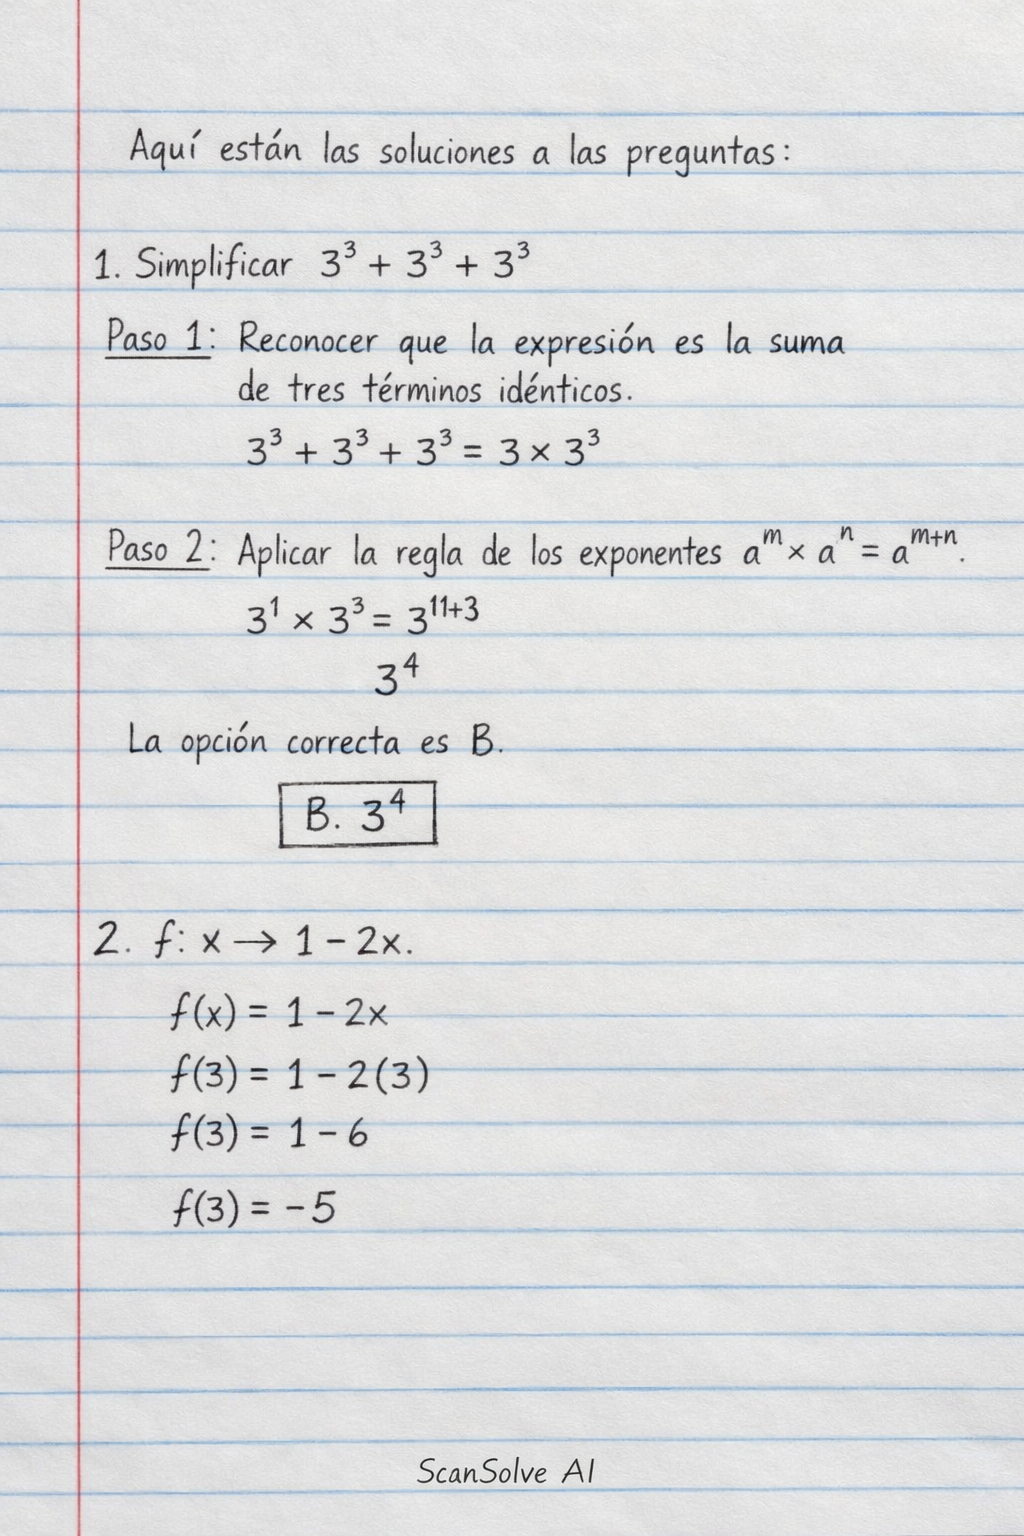 Aquí están las soluciones a las preguntas:
1. Simplificar 3³ + 3³ + 3³
Paso 1: Reconocer que la expresión es la suma
de tres términos idénticos.
3³ + 3³ + 3³ = 3 × 3³
Paso 2: Aplicar la regla de los exponentes aᵐ × aⁿ = aᵐ⁺ⁿ.
3¹ × 3³ = 3¹¹⁺³
3⁴
La opción correcta es B.
B. 3⁴
2. f: x → 1 - 2x.
f(x) = 1 - 2x
f(3) = 1 - 2(3)
f(3) = 1 - 6
f(3) = -5
ScanSolve AI